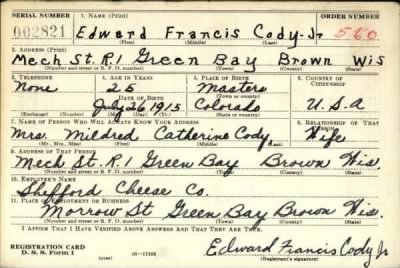 SERIAL NUMBER 1. NAME (Print) ORDER NUMBER
002821 Edward Francis Cody-Jr 560
(First) (Middle) (Last)
2. ADDRESS (Print)
Mech St. R1 Green Bay Brown Wis
(Number and street or R. F. D. number) (Town) (County) (State)
3. TELEPHONE 4. AGE IN YEARS 5. PLACE OF BIRTH 6. COUNTRY OF CITIZENSHIP
None 25 Masters
DATE OF BIRTH (Town or county)
July 26 1915 Colorado U.S.A
(Exchange) (Number) (Mo.) (Day) (Yr.) (State or country)
7. NAME OF PERSON WHO WILL ALWAYS KNOW YOUR ADDRESS 8. RELATIONSHIP OF THAT PERSON
Mrs. Mildred Catherine Cody Wife
(Mr., Mrs., Miss) (First) (Middle) (Last)
9. ADDRESS OF THAT PERSON
Mech St. R1 Green Bay Brown Wis.
(Number and street or R. F. D. number) (Town) (County) (State)
10. EMPLOYER'S NAME
Shefford Cheese Co.
11. PLACE OF EMPLOYMENT OR BUSINESS
Morrow St Green Bay Brown Wis.
(Number and street or R. F. D. number) (Town) (County) (State)
I AFFIRM THAT I HAVE VERIFIED ABOVE ANSWERS AND THAT THEY ARE TRUE.
REGISTRATION CARD
D. S. S. Form 1 (over) Edward Francis Cody Jr
(Registrant's signature)